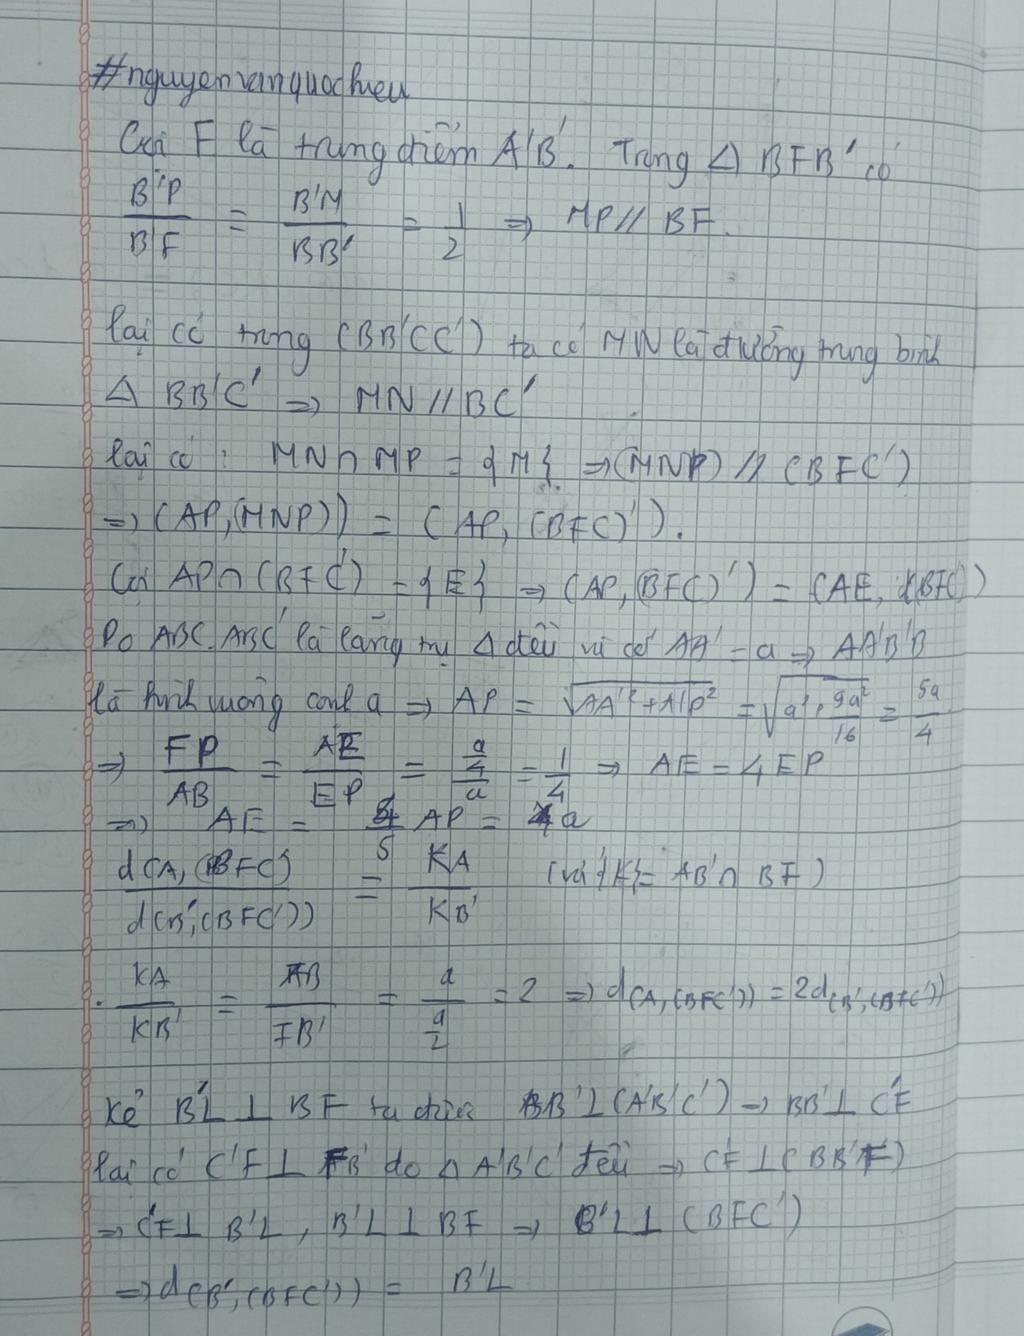 #nguyenvanquochieu
Gọi F là trung điểm A'B'. Trong △ BFB' có
B'P/B'F = B'M/BB' = 1/2 ⇒ MP // BF.
lại có trong (BB'CC') ta có MN là đường trung bình
△ BB'C' ⇒ MN // BC'
lại có : MN ∩ MP = {M} ⇒ (MNP) // (BFC')
⇒ (AP, (MNP)) = (AP, (BFC)').
Gọi AP ∩ (BFC') = {E} ⇒ (AP, (BFC)') = (AE, (BFC))
Do ABC.A'B'C' là lăng trụ △ đều và có AA' = a ⇒ AA'B'B
là hình vuông cạnh a ⇒ AP = √(AA'² + A'P²) = √(a² + 9a²/16) = 5a/4
⇒ FP/AB = AE/EP = (a/4)/a = 1/4 ⇒ AE = 4 EP
⇒ AE = 4/5 AP = a
d(A, (BFC'))/d(B', (BFC')) = KA/KB' (với {K} = AB' ∩ BF)
KA/KB' = AB/FB' = a/(a/2) = 2 ⇒ d(A, (BFC')) = 2d(B', (BFC'))
Kẻ B'L ⊥ BF ta được BB' ⊥ (A'B'C') ⇒ BB' ⊥ C'F
lại có C'F ⊥ FB' do △ A'B'C' đều ⇒ C'F ⊥ (BB'F)
⇒ C'F ⊥ B'L , B'L ⊥ BF ⇒ B'L ⊥ (BFC')
⇒ d(B', (BFC')) = B'L